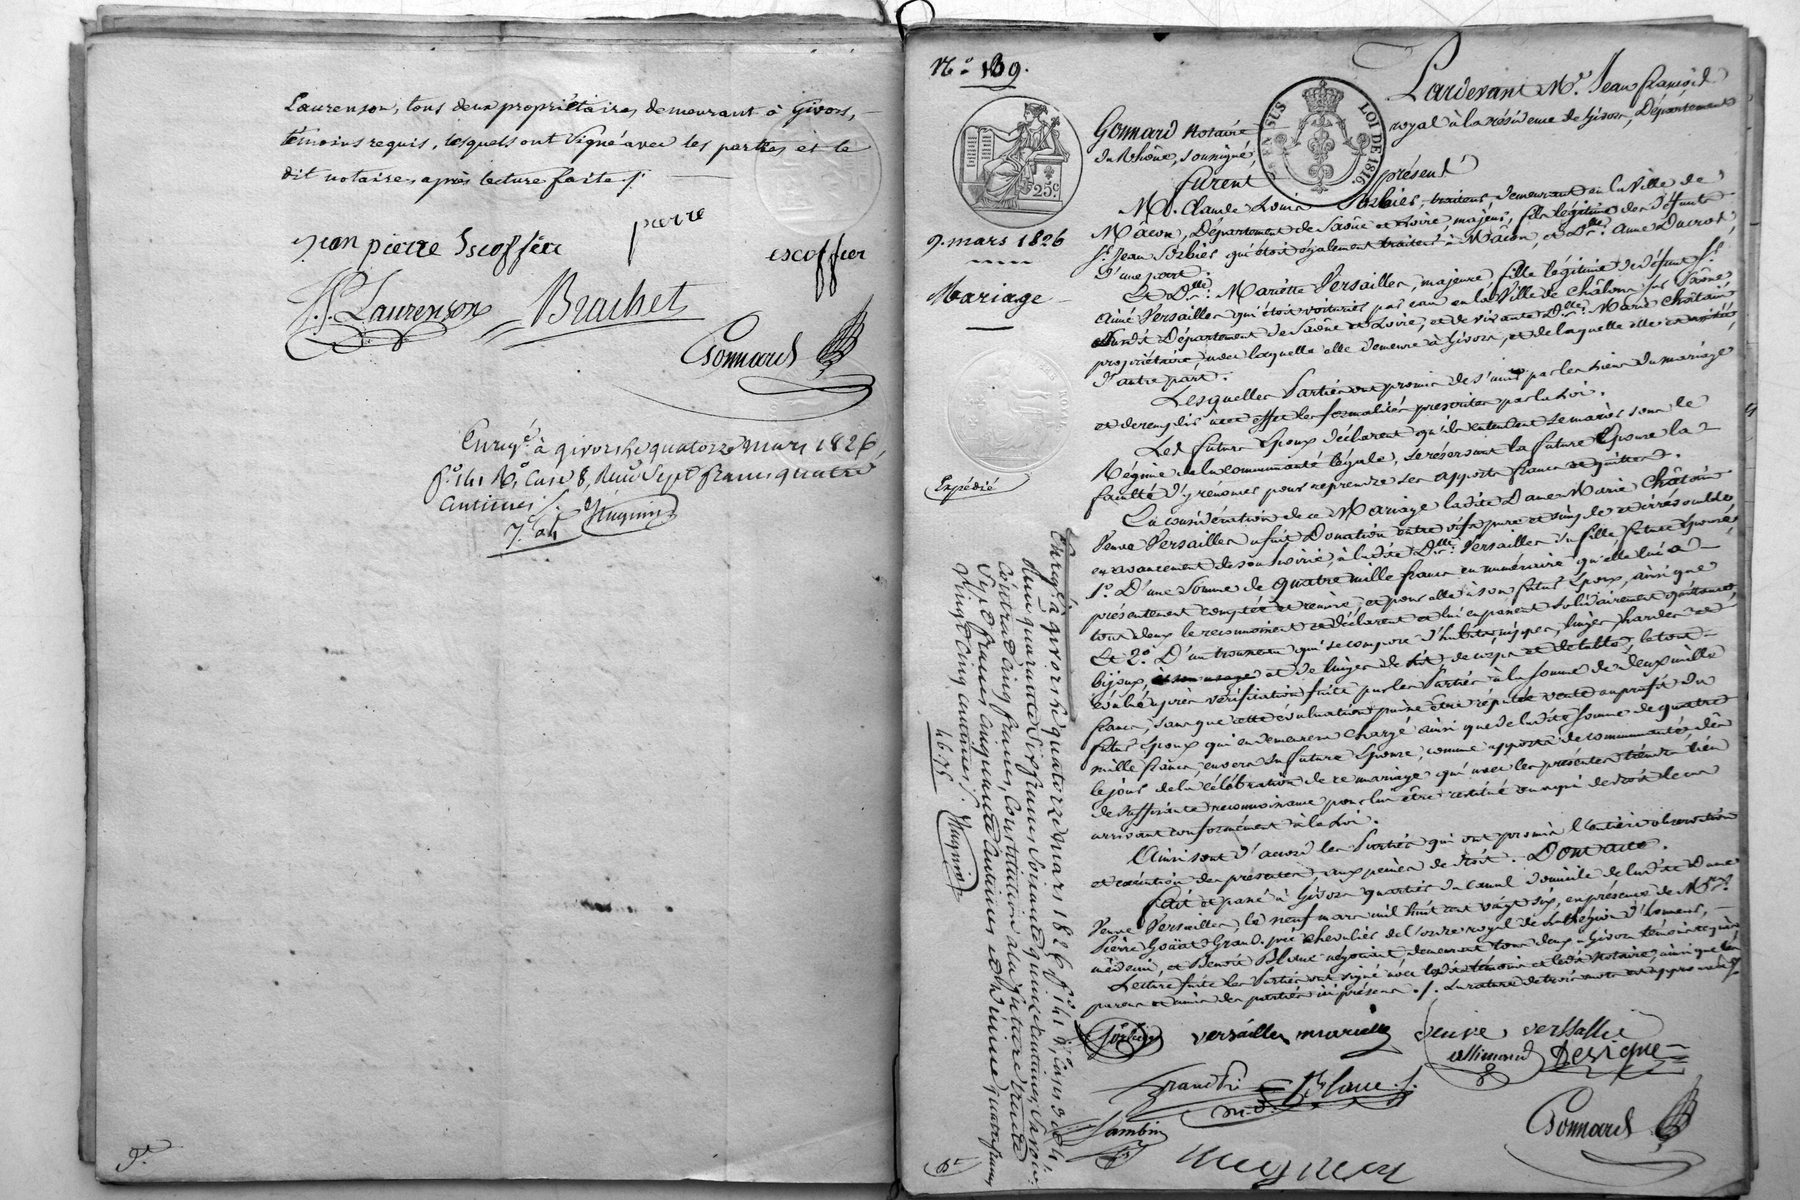 Laurenson, tous deux propriétaires, demeurant à Givors,
témoins requis, lesquels ont Signé avec les parties et le
dit notaire, après lecture faite ./.
parre
jean pierre Escoffier
escoffier
J. P. Laurenson
Brachet
Gonnard
Enreg.é à givors le quatorze mars 1826,
f.o 141 R.o Case 8, Reçu Sept francs quatre
centimes
Huguin
N.o 139.
9. mars 1826
Mariage
Expédié
25c.
LOI DE 1816.
Pardevant M.e Jean françois
Gonnard Notaire royal à la résidence de Givors, Département
du Rhône, soussigné,
furent présent
M.r Claude Louis Sorbier, traiteur, demeurant en la Ville de
Macon, Département de Saône et Loire, majeur, fils légitime des défunts
S.r Jean Sorbier qui étoit également traiteur à Mâcon, et D.lle Anne Ducrot,
d'une part.
Et D.lle Mariette Versailles, majeure, fille légitime de défunt S.r
Aimé Versailles qui étoit voiturier par eau en la Ville de Châlons sur Saône
susdit Département de Saône et Loire, et de vivante D.lle Marie Châtain
propriétaire avec laquelle elle demeure à Givors, et de laquelle elle est
d'autre part.
Lesquelles Parties ont promis de s'unir par les liens du mariage
et de remplir à cet effet les formalités prescrites par la Loi.
Les futurs Epoux déclarent qu'ils entendent se marier sous le
Régime de la communauté légale, se réservant la future Epouse la
faculté d'y rénoncer pour reprendre ses apports francs et quittes.
En considération de ce Mariage ladite Dame Marie Châtain
Veuve Versailles a fait Donation entre vifs pure et simple et irrévocable
en avancement de son hoirie, à ladite D.lle Versailles sa fille, future Epouse,
1.o D'une Somme de quatre mille francs en numéraire qu'elle lui a
présentement comptée et remise, et pour elle à son futur Epoux, ainsi que
tous deux le reconnoissent et déclarent et lui en passent solidairement quittance,
Et 2.o D'un trousseau qui se compose d'habits, nippes, linges, hardes et
bijoux, et de linges de lit, de corps et de table, le tout
évalué après vérification faite par les Parties à la somme de deux mille
francs, sans que cette évaluation puisse être réputée vente au profit du
futur Epoux qui en demeurera chargé ainsi que de ladite Somme de quatre
mille francs, envers sa future Epouse, comme apports de communauté, dès
le jour de la célébration de ce mariage qui avec les présentes tiendra lieu
de suffisante reconnoissance pour lui être restitué ou à qui de droit le cas
arrivant conformément à la Loi.
Ainsi sont d'accord les Parties qui ont promis l'entière observation
et exécution des présentes, aux peines de droit. Dont acte.
Fait et passé à Givors quartier du Canal domicile de ladite Dame
Veuve Versailles, le neuf mars mil huit cent vingt six, en présence de M.rs
Pierre Goüat Grand. pré Chevalier de l'ordre royal de la Légion d'honneur,
médecin, et Benoit Blanc négociant, demeurant tous deux à Givors témoins requis,
Lecture faite les Parties ont signé avec lesdits témoins et ledit Notaire, ainsi que les
parens et amis des parties ici présens ./. La rature de trois mots est approuvée ./.
Enregt.é à givors le quatorze mars 1826, f.o 141 R.o Cases 3 et 4,
Reçu quarante Six francs Soixante quinze centimes, Savoir
Contrat cinq francs, Constitution à la future trente
Sept francs cinquante centimes et dixième quatre francs
Vingt cinq centimes ./.
46.75
Huguin
Sorbier
versailles mariette
veuve versallie
allimand
Devigne
Grandpré
m.d.
Blanc
Jambin
Gonnard